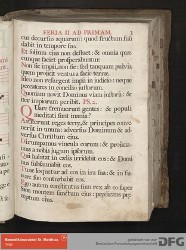 FERIA II AD PRIMAM. 3
cus decursus aquarum: quod fructum suũ
dabit in tempore suo.
Et folium eius non defluet: & omnia quæ-
cunque faciet prosperabuntur.
Non sic impii, non sic: sed tanquam pulvis
quem proiicit ventus a facie terræ.
Ideo non resurgent impii in iudicio: neque
peccatores in concilio iustorum.
Quoniam novit Dominus viam iustorũ: &
iter impiorum peribit. Ps. 2.
Quare fremuerunt gentes: & populi
meditati sunt inania?
Astiterunt reges terræ, & principes conve-
nerunt in unum: adversus Dominum & ad-
versus Christum eius.
Dirumpamus vincula eorum: & proiicia-
mus a nobis iugum ipsorum.
Qui habitat in cælis irridebit eos: & Domi
nus subsannabit eos.
Tunc loquetur ad eos in ira sua: & in fu-
rore suo conturbabit eos.
Ego autem constitutus sum rex ab eo super
Sion montem sanctum eius: prædicans præ-
ceptum eius.
gefördert von der
DFG